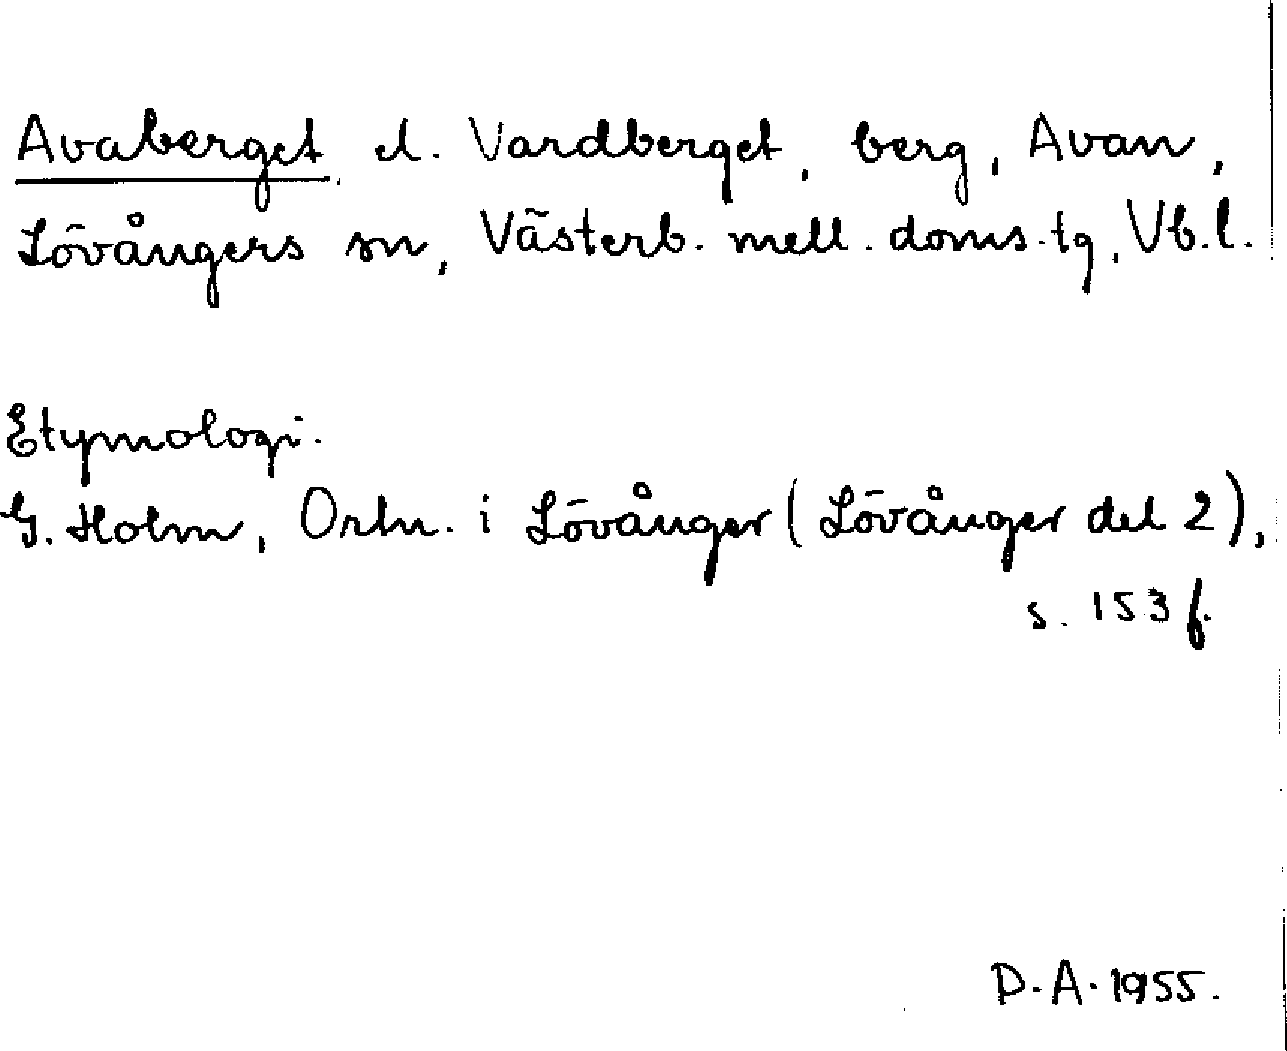 Avaberget el. Vardberget, berg, Avan,
Lövångers sn, Västerb. mell. doms. tg, Vb. l.
Etymologi.
G. Holm, Ortn. i Lövånger (Lövånger del 2),
s. 153 f.
D. A. 1955.